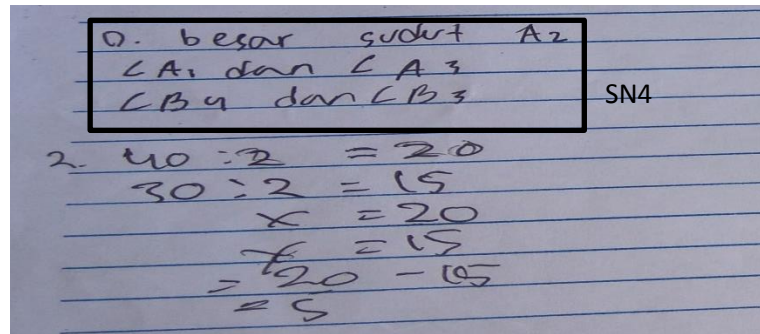 D. besar sudut A2
∠A1 dan ∠A3
∠B4 dan ∠B3
SN4
2. 40 : 2 = 20
30 : 2 = 15
x = 20
y = 15
= 20 - 15
= 5